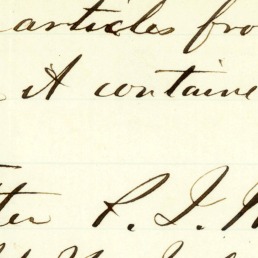 articles fro
A containe
ter P. J.